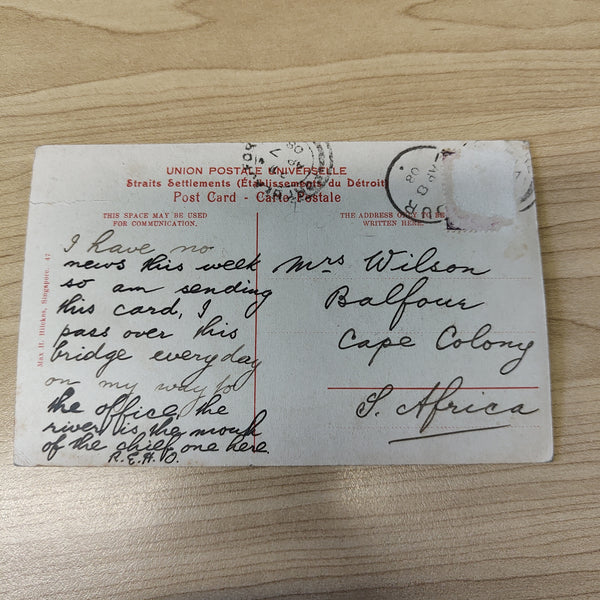 UNION POSTALE UNIVERSELLE
Straits Settlements (Établissements du Détroit
Post Card - Carte Postale
THIS SPACE MAY BE USED
FOR COMMUNICATION.
THE ADDRESS ONLY TO BE
WRITTEN HERE.
Max H. Hilckes, Singapore. 47
I have no
news this week
so am sending
this card, I
pass over this
bridge everyday
on my way to
the office, the
river is the mouth
of the chief one here.
R.E.H.O.
Mrs Wilson
Balfour
Cape Colony
S. Africa